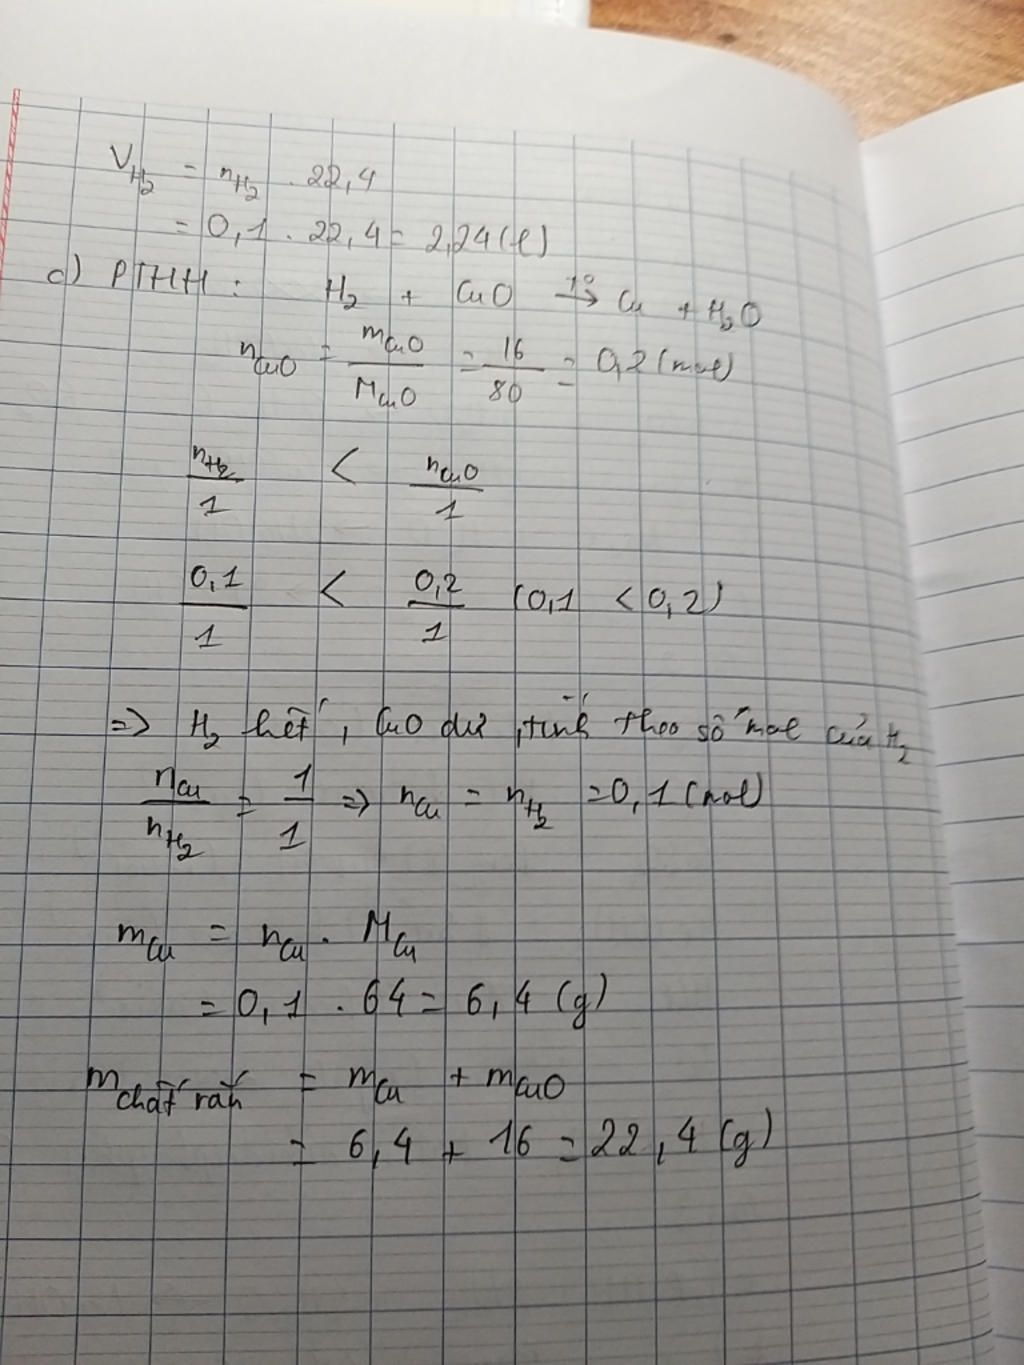 V_H₂ = n_H₂ . 22,4
= 0,1 . 22,4 = 2,24 (l)
c) PTHH : H₂ + CuO →t° Cu + H₂O
n_CuO = m_CuO / M_CuO = 16 / 80 = 0,2 (mol)
n_H₂ / 1 < n_CuO / 1
0,1 / 1 < 0,2 / 1 (0,1 < 0,2)
=> H₂ hết, CuO dư, tính theo số mol của H₂
n_Cu / n_H₂ = 1 / 1 => n_Cu = n_H₂ = 0,1 (mol)
m_Cu = n_Cu . M_Cu
= 0,1 . 64 = 6,4 (g)
m_chất rắn = m_Cu + m_CuO
= 6,4 + 16 = 22,4 (g)